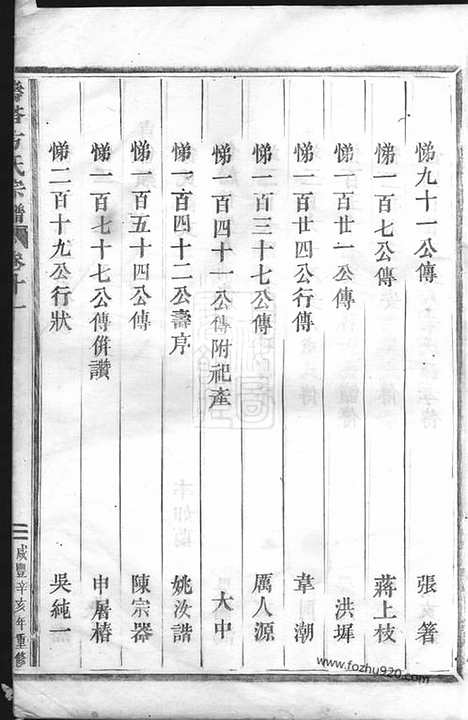 悌九十一公傳 張箸
悌一百七公傳 蔣上枝
悌一百廿一公傳 洪墀
悌一百廿四公行傳 韋潮
悌一百三十七公傳 厲人源
悌一百四十一公傳附祀產 大中
悌一百四十二公壽序 姚汝諧
悌一百五十四公傳 陳宗器
悌一百七十七公傳併讚 申屠椿
悌二百十九公行狀 吳純一
方氏宗譜 卷十一
咸豐辛亥年重修
www.fozhu920.com